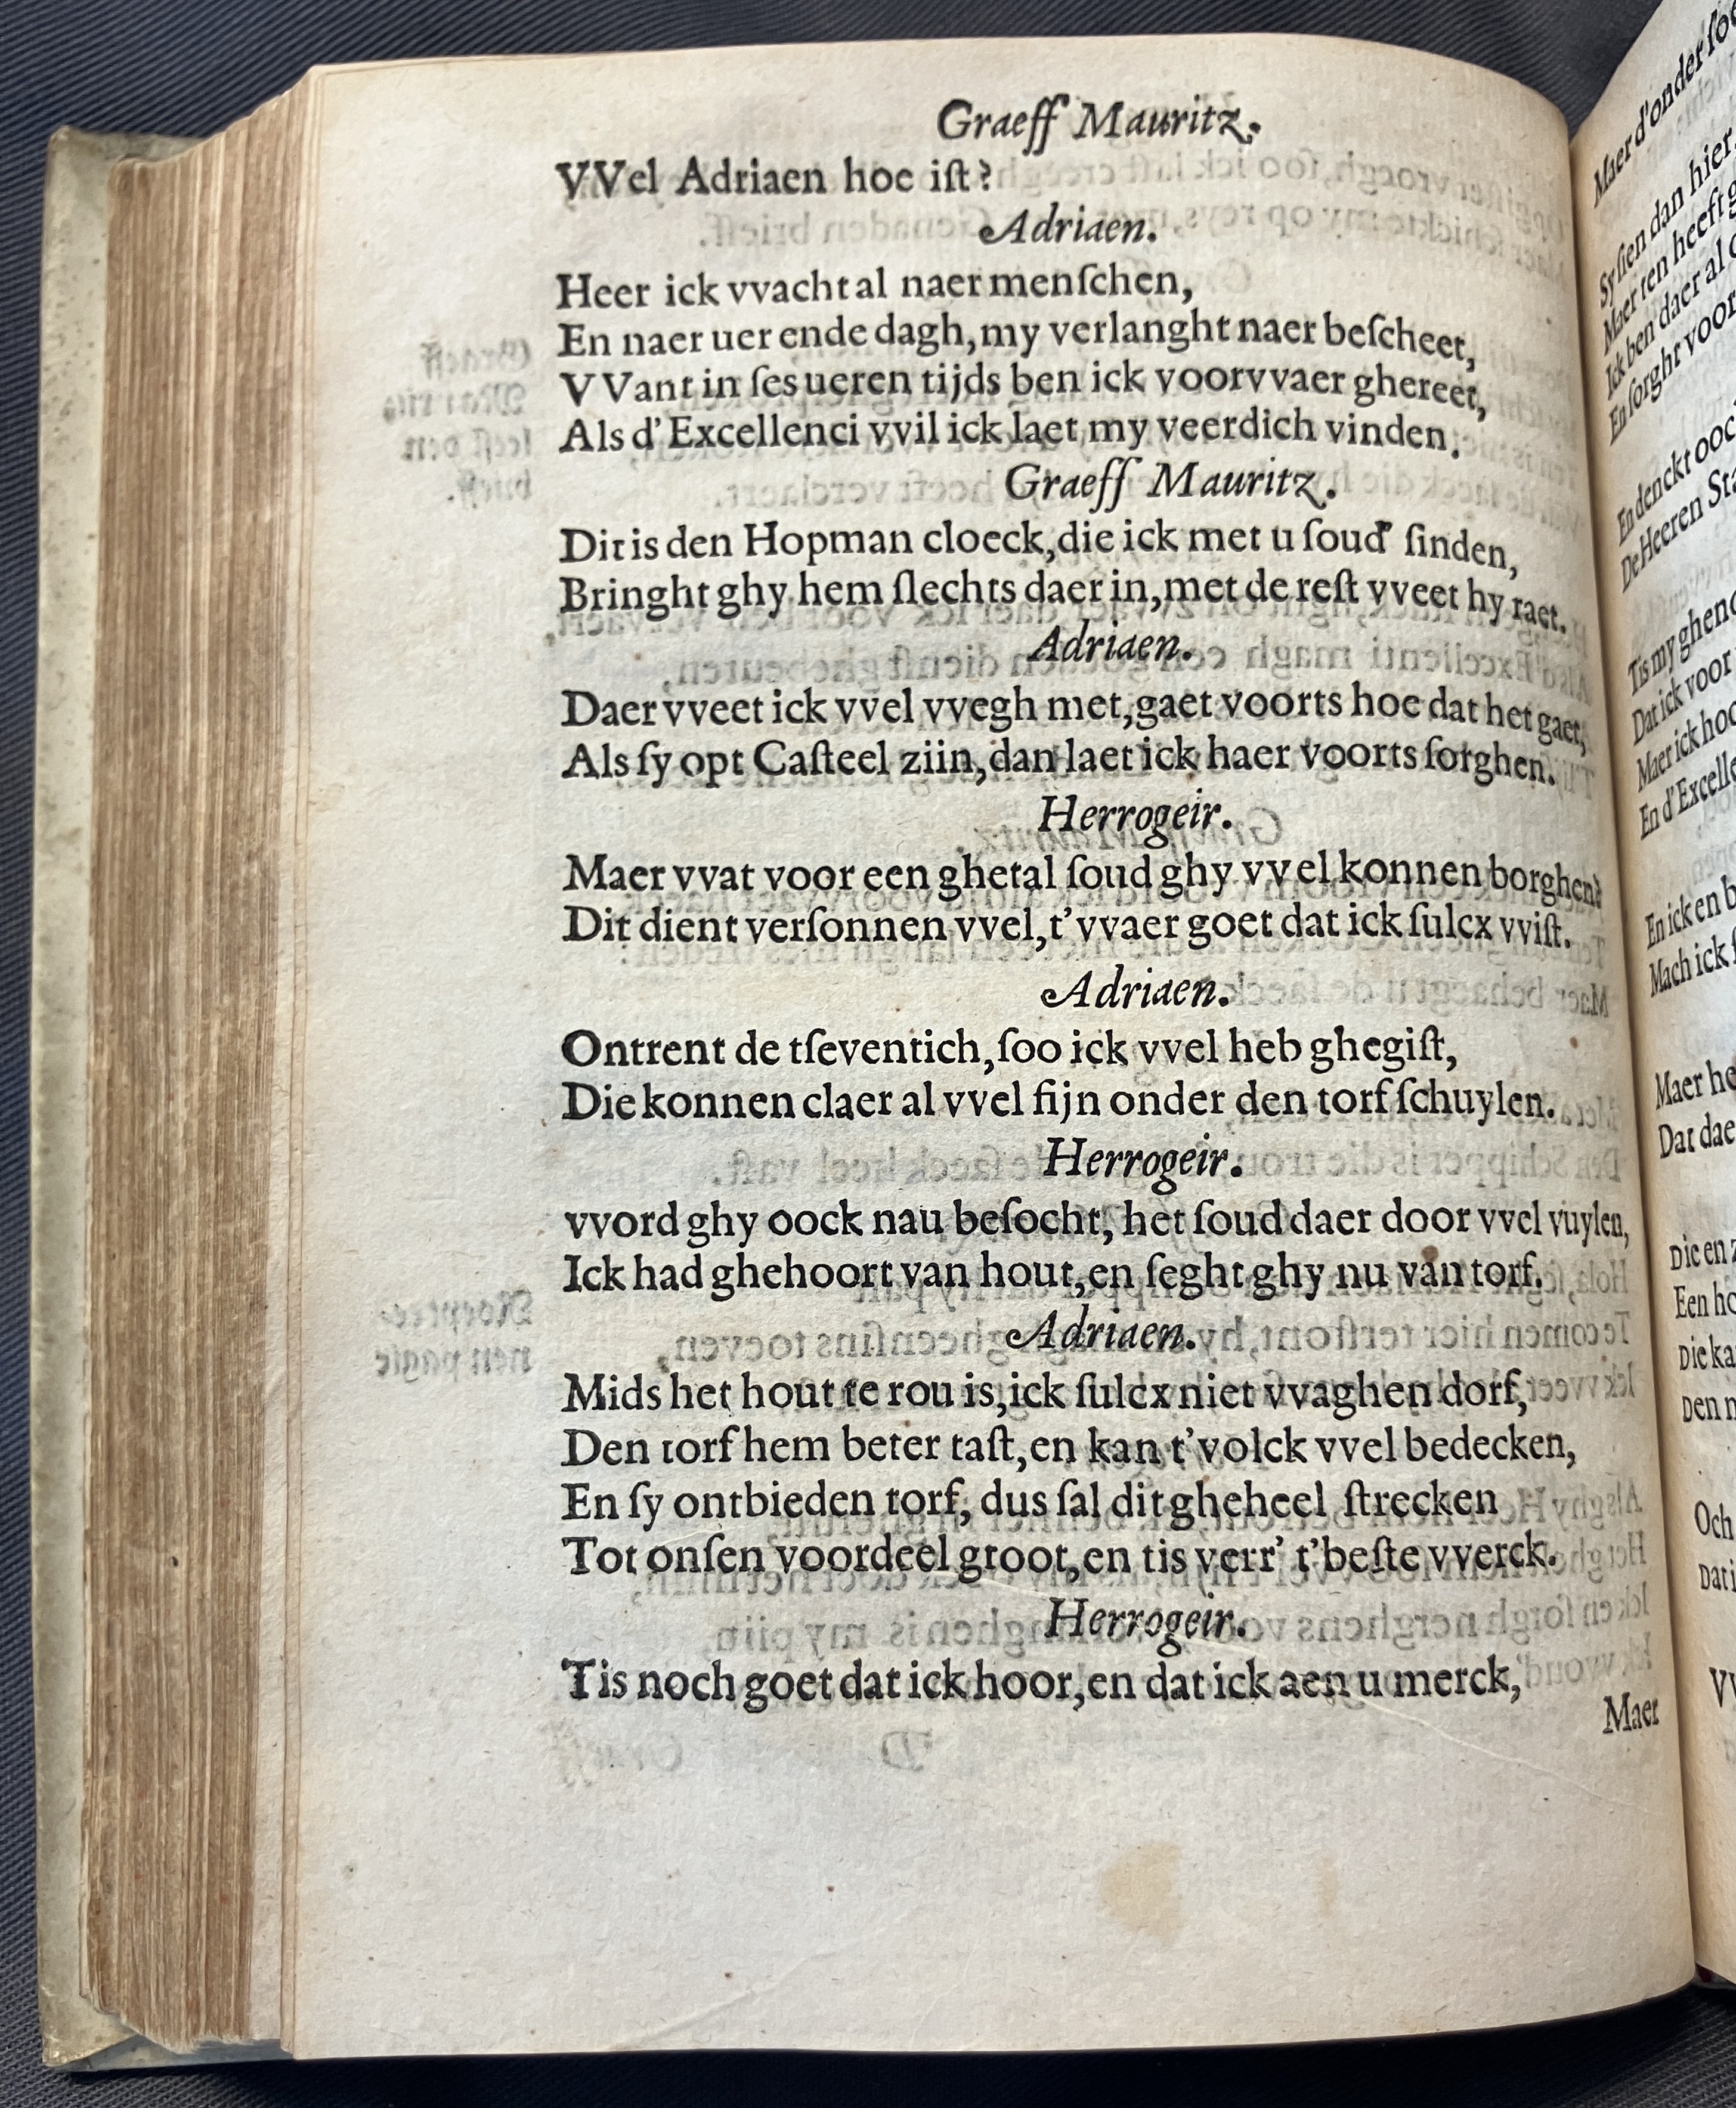 Graeff Mauritz.
VVel Adriaen hoe iſt?
Adriaen.
Heer ick vvacht al naer menſchen,
En naer uer ende dagh, my verlanght naer beſcheet,
VVant in ſes ueren tijds ben ick voorvvaer ghereet,
Als d'Excellenci vvil ick laet my veerdich vinden.
Graeff Mauritz.
Dit is den Hopman cloeck, die ick met u ſoud' ſinden,
Bringht ghy hem ſlechts daer in, met de reſt vveet hy raet.
Adriaen.
Daer vveet ick vvel vvegh met, gaet voorts hoe dat het gaet,
Als ſy opt Caſteel ziin, dan laet ick haer voorts ſorghen.
Herrogeir.
Maer vvat voor een ghetal ſoud ghy vvel konnen borghen?
Dit dient verſonnen vvel, t'vvaer goet dat ick ſulcx vviſt.
Adriaen.
Ontrent de tſeventich, ſoo ick vvel heb ghegiſt,
Die konnen claer al vvel ſijn onder den torf ſchuylen.
Herrogeir.
vvord ghy oock nau beſocht, het ſoud daer door vvel vuylen,
Ick had ghehoort van hout, en ſeght ghy nu van torf.
Adriaen.
Mids het hout te rou is, ick ſulcx niet vvaghen dorf,
Den torf hem beter taſt, en kan t'volck vvel bedecken,
En ſy ontbieden torf, dus ſal dit gheheel ſtrecken
Tot onſen voordeel groot, en tis verr' t'beſte vverck.
Herrogeir.
Tis noch goet dat ick hoor, en dat ick aen u merck,
Maer
Maer d'onder
Sy ſien dan hier
Maer ten heeft
Ick ben daer al
En ſorght voor
En denckt
De Heeren
Tis my
Dat ick voor
Maer ick
En
En ick en
Mach ick
Maer
Dat
Die en
Een
Die
Den
Och